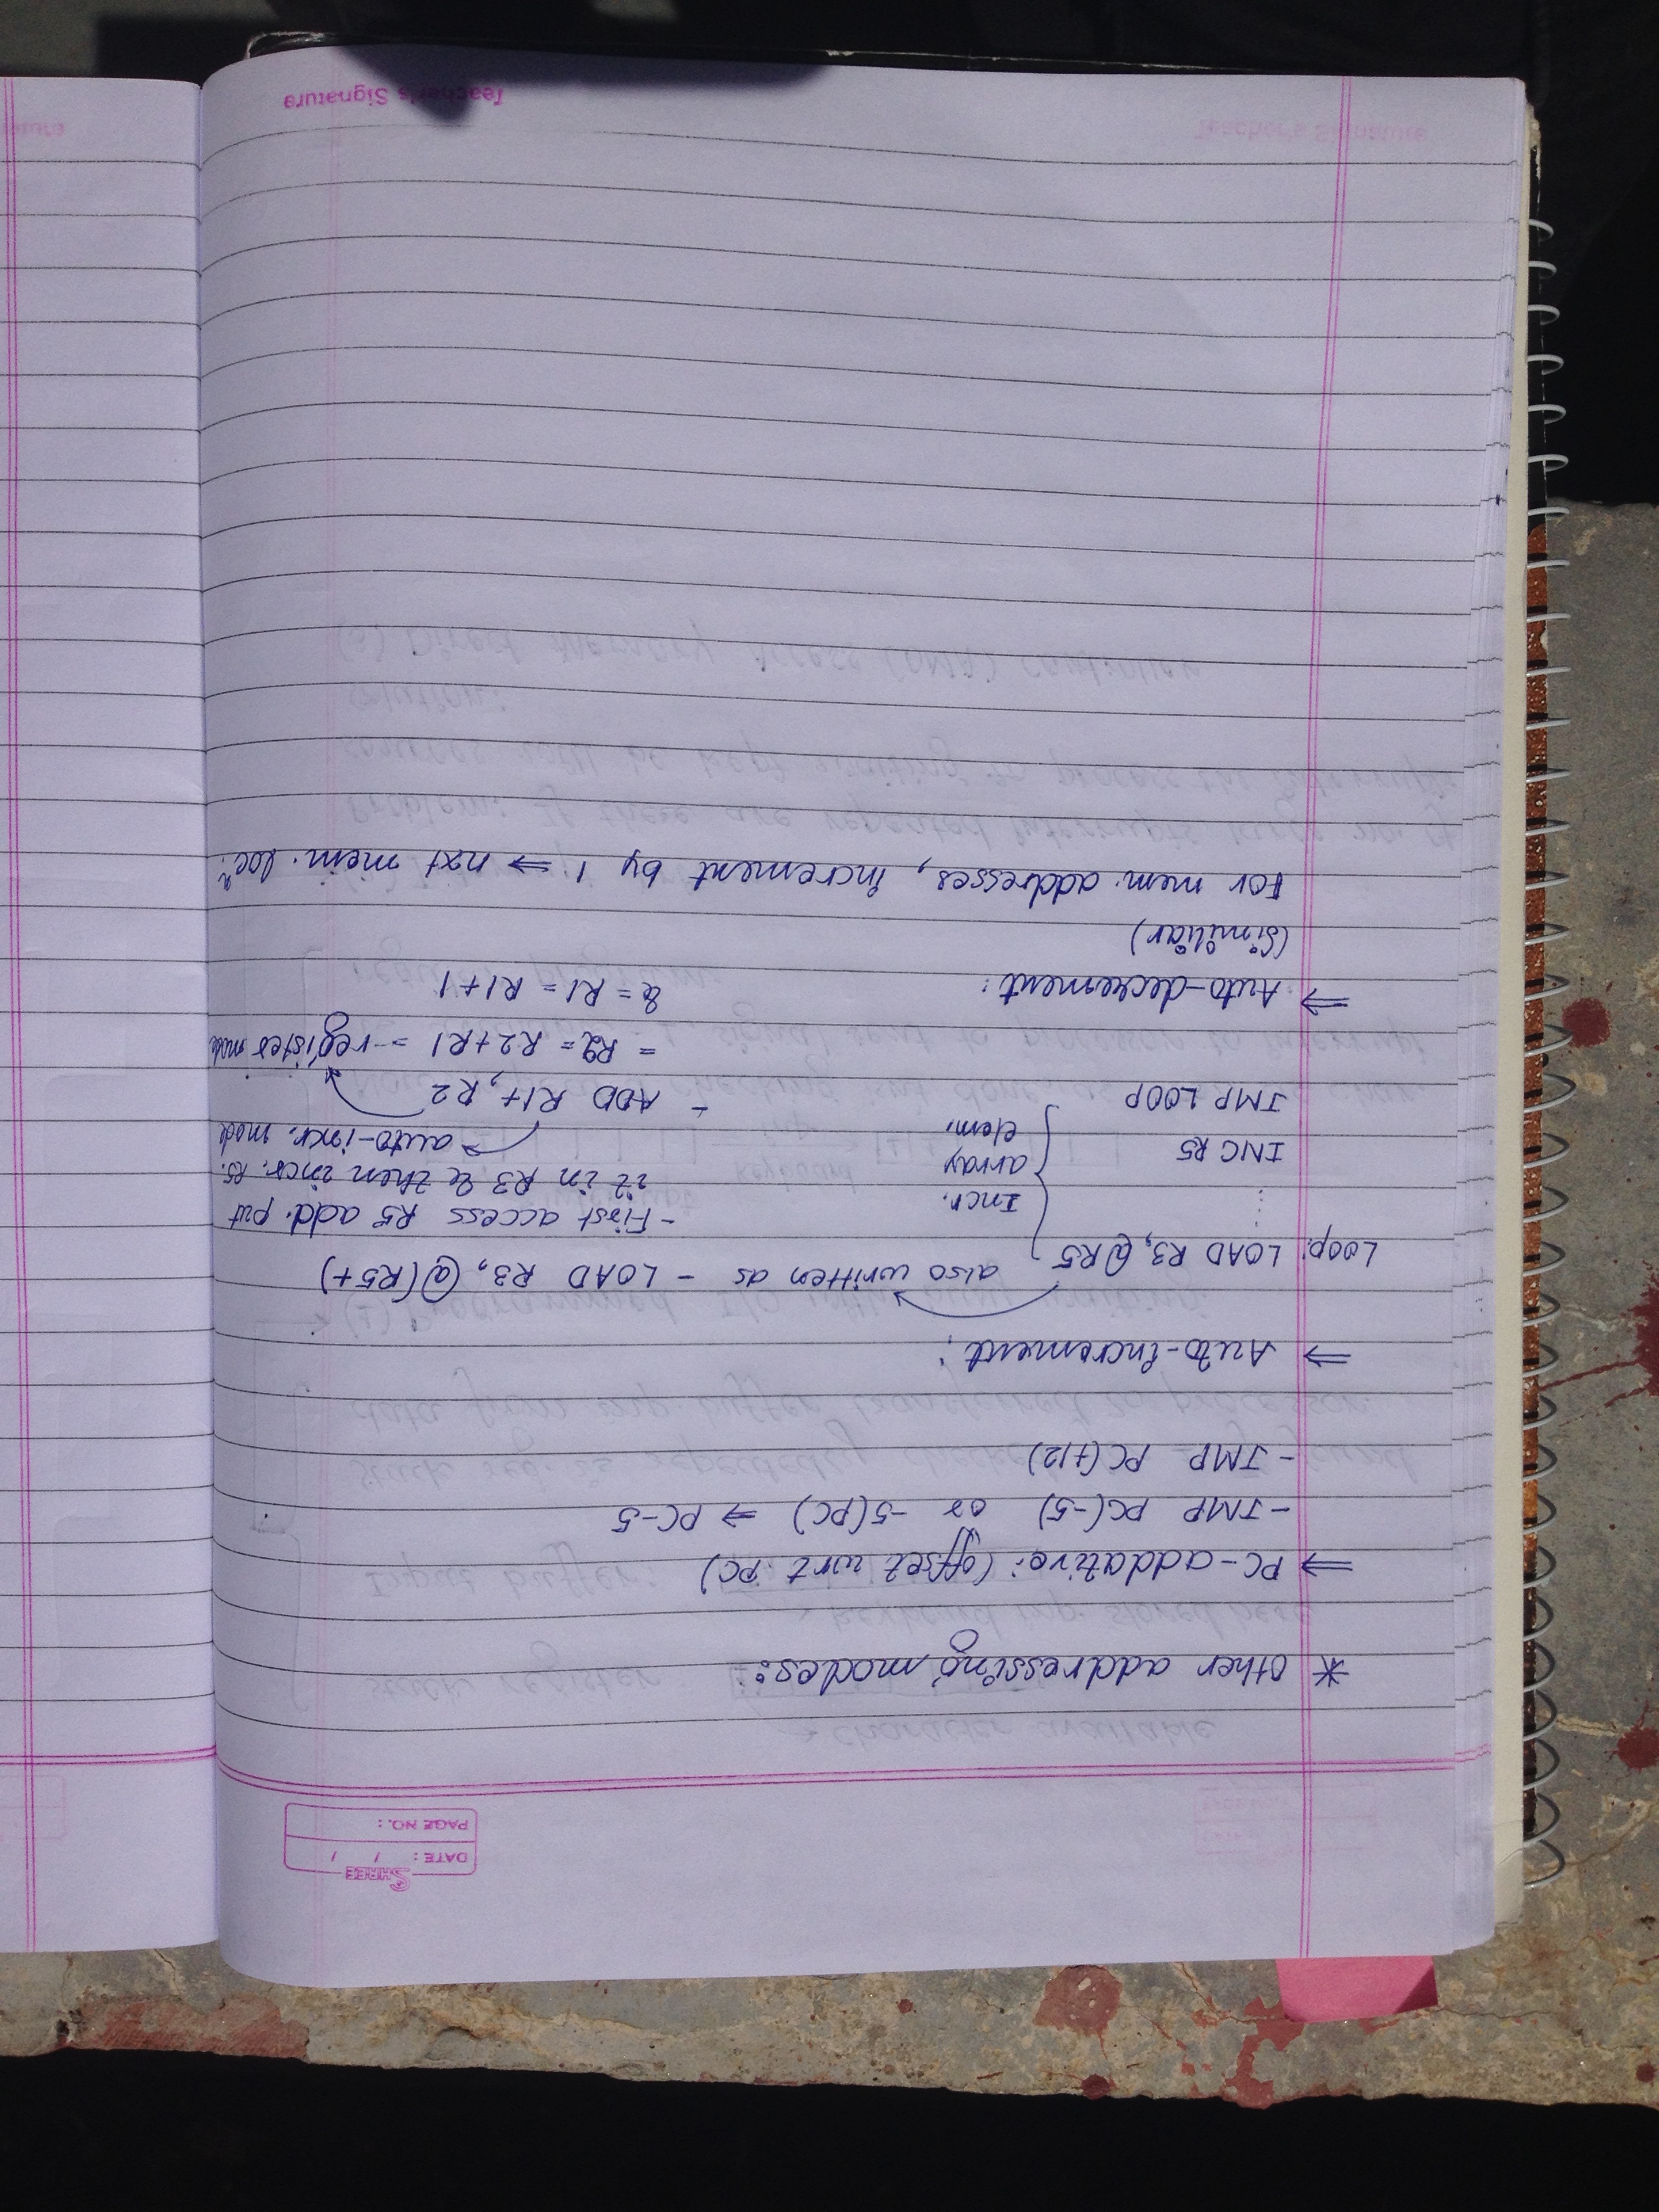 SHREE
DATE : / /
PAGE NO. :
* Other addressing modes:
⇒ PC-addative: (offset wrt PC)
- JMP PC(-5) or -5(PC) ⇒ PC-5
- JMP PC(+12)
⇒ Auto-increment:
Loop: LOAD R3, @R5
⋮
INC R5
JMP LOOP
Incr.
array
elem.
also written as - LOAD R3, @(R5+)
- First access R5 add. put
it in R3 & then incr. R5.
→ auto-incr. mode
- ADD R1+, R2
= R2 = R2+R1 = register mode
& = R1 = R1+1
⇒ Auto-decrement:
(Similiar)
For mem. addresses, increment by 1 ⇒ nxt mem. locⁿ.
Teacher's Signature